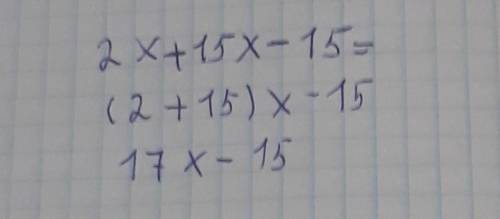 2x+15x-15=
(2+15)x-15
17x-15